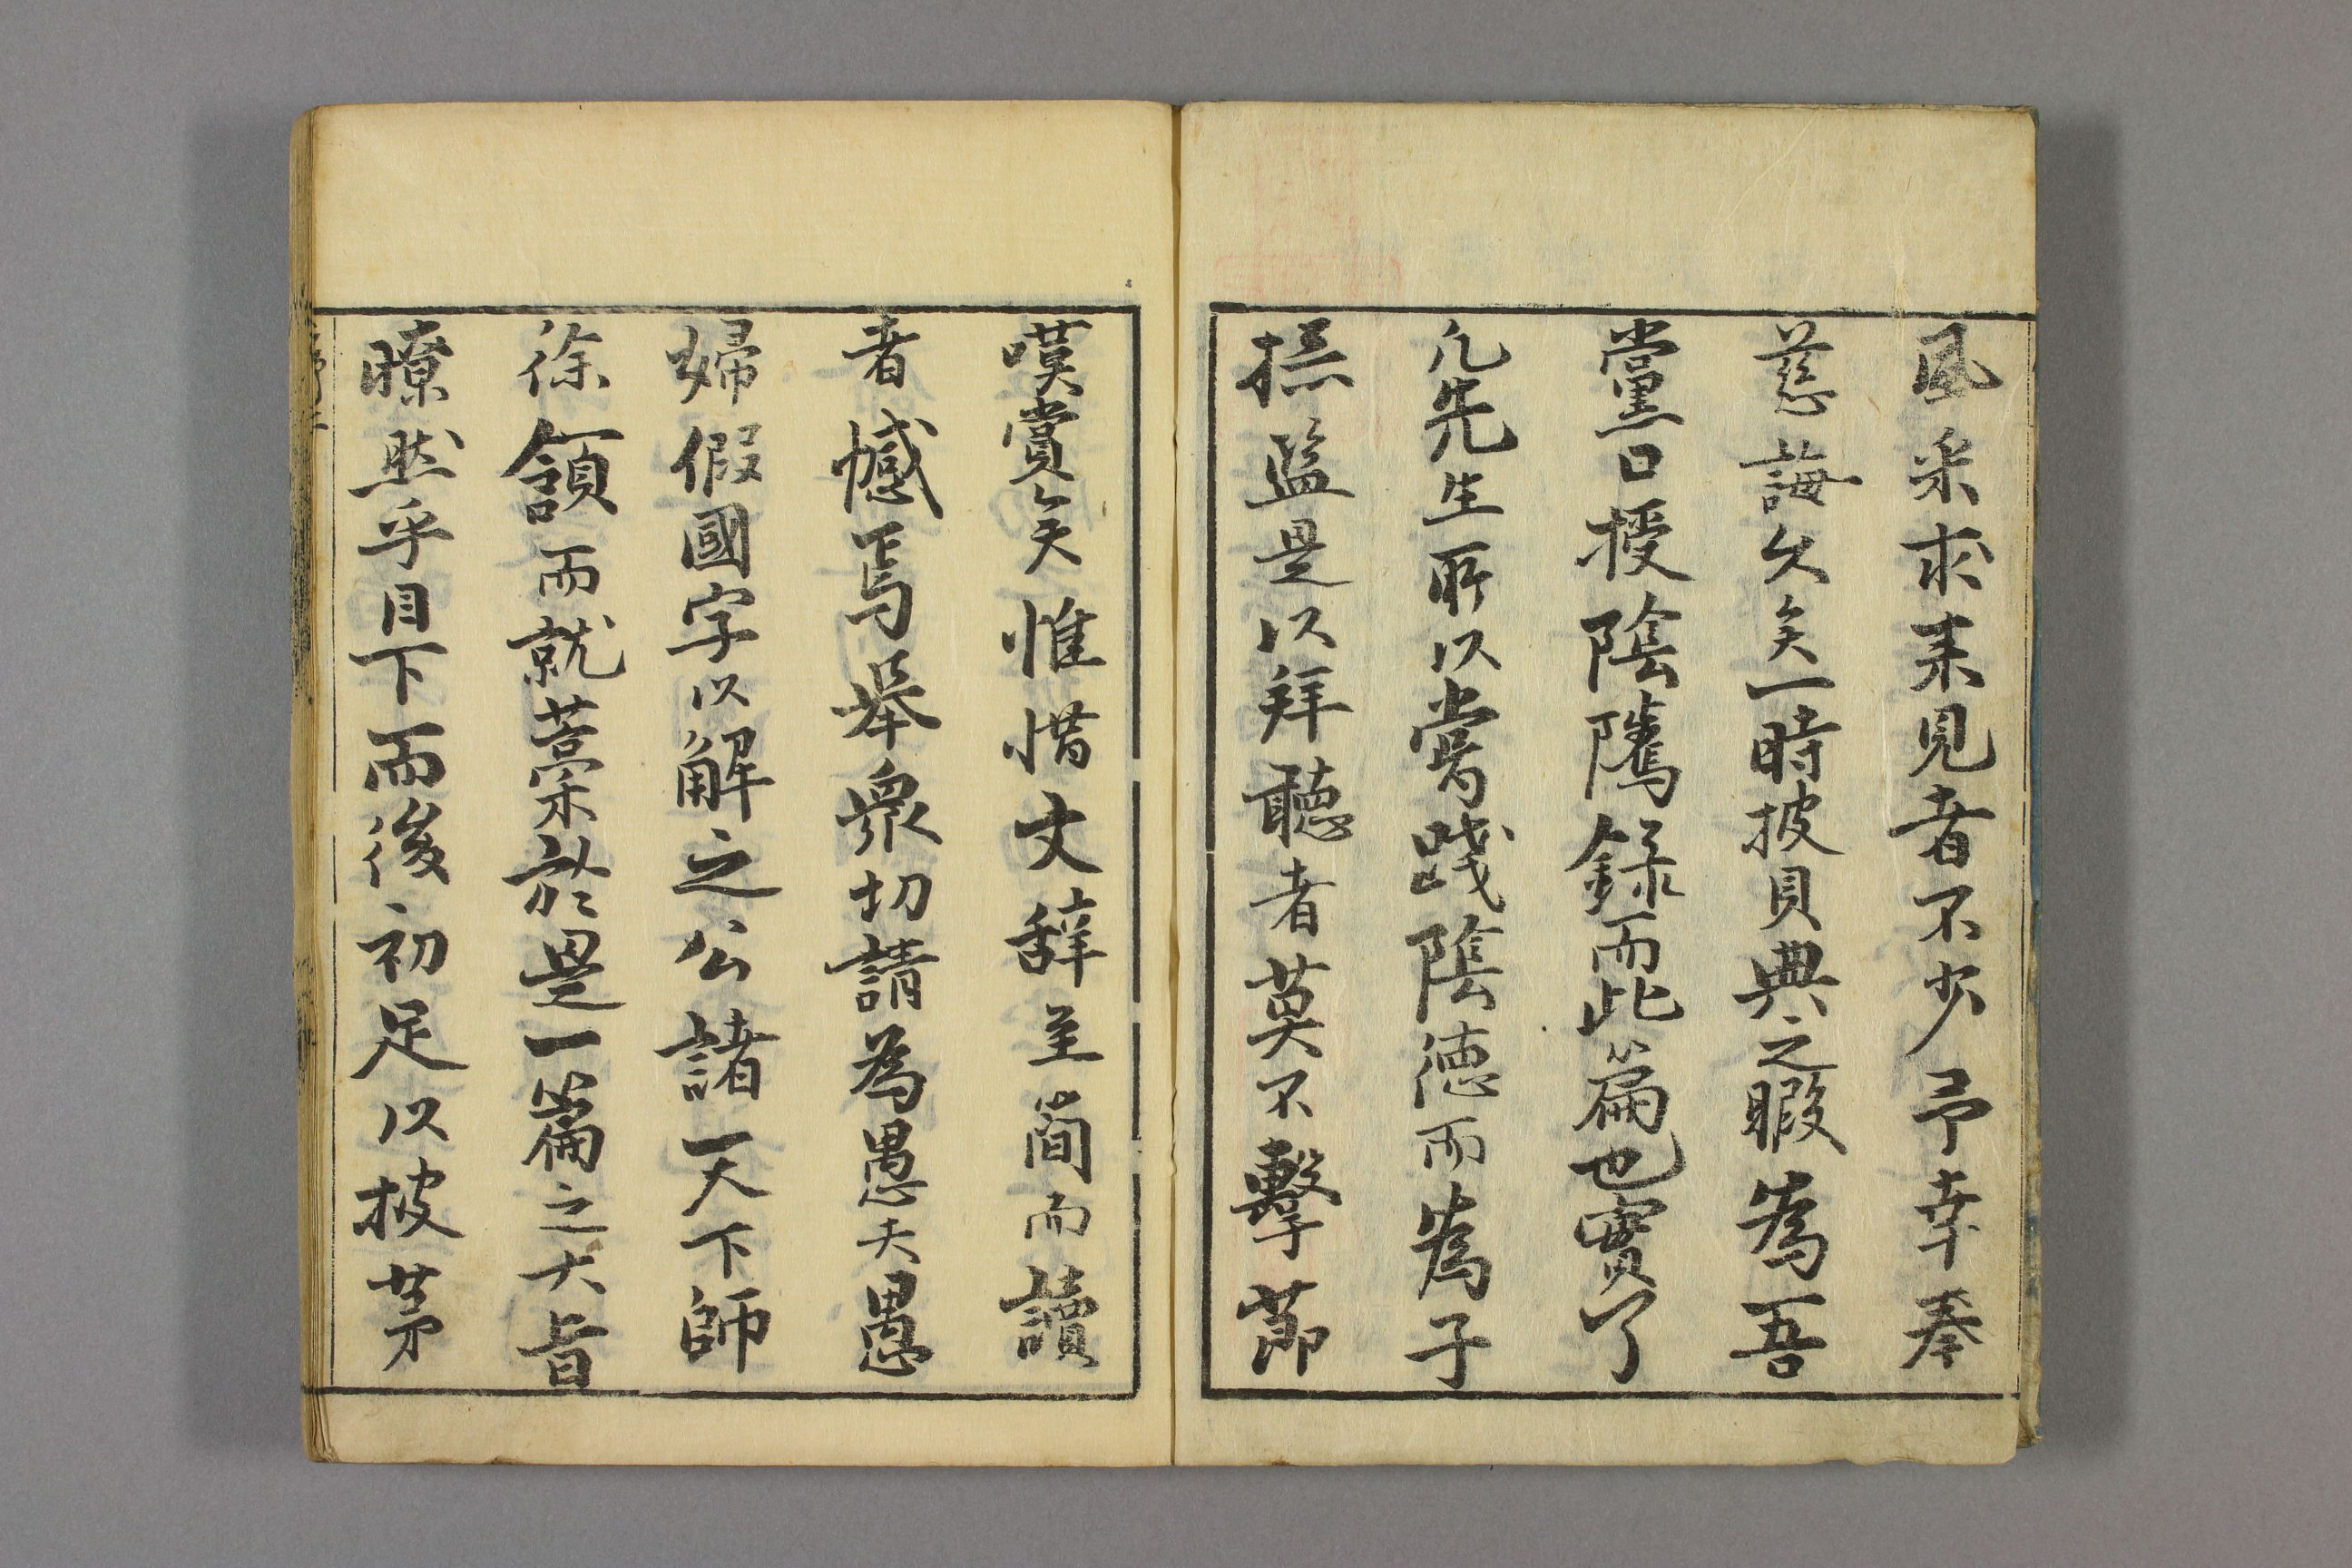 風采求来見者不少予幸奉
慈誨久矣一時披貝典之暇為吾
黨口授陰隲録而此篇也實了
凡先生所以嘗践陰德而為子
孫監是以拜聽者莫不擊節
嘆賞矣惟惜文辞至简而讀
者憾焉举衆切請為愚夫愚
婦假國字以解之公諸天下師
徐領而就藁於是一篇之大旨
瞭然乎目下而後初足以披茅